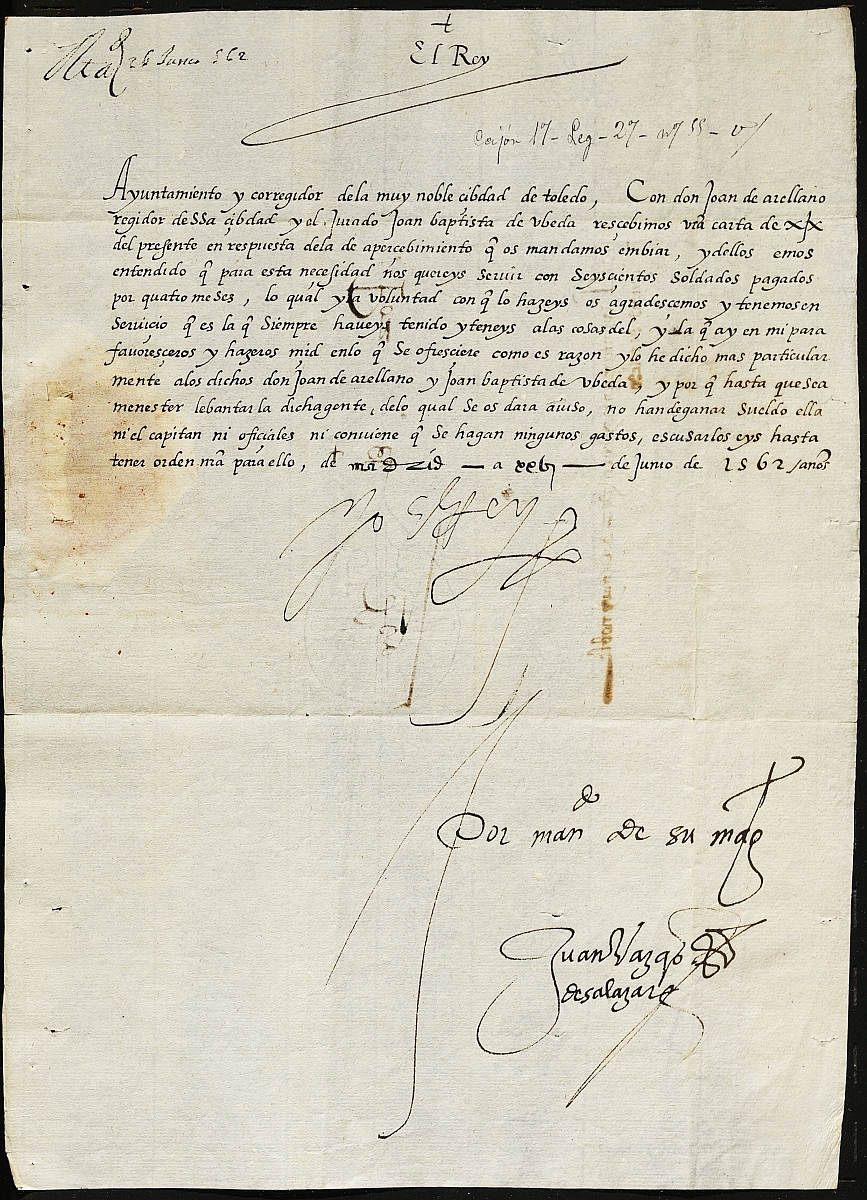 +
26 Junio 562
El Rey
Cajón 1º - Leg - 2º - nº 55 -
Ayuntamiento y corregidor dela muy noble çibdad de toledo, Con don Joan de arellano
regidor de ssa çibdad y el Jurado Joan baptista de Vbeda rescebimos vra carta de xjx
del presente en respuesta dela de apercebimiento q̃ os mandamos embiar, y dellos emos
entendido q̃ para esta necesidad nos quereys servir con Seyscientos Soldados pagados
por quatro meses, lo qual y la voluntad con q̃ lo hazeys os agradescemos y tenemos en
Servicio q̃ es la q̃ Siempre haveys tenido y teneys alas cosas del, y la q̃ ay en mi para
favoresceros y hazeros mrd enlo q̃ Se ofresciere como es razon y lo he dicho mas particular
mente alos dichos don Joan de arellano y Joan baptista de Vbeda, y por q̃ hasta que sea
menester lebantar la dicha gente, delo qual Se os dara auiso, no han de ganar Sueldo ella
ni el capitan ni oficiales ni conviene q̃ Se hagan ningunos gastos, escusarlos eys hasta
tener orden nrã para ello, de madrid — a xxvj — de Junio de 1562 / años
Yo el Rey
Por man do de su mag
Juan Vazqz
de salazar